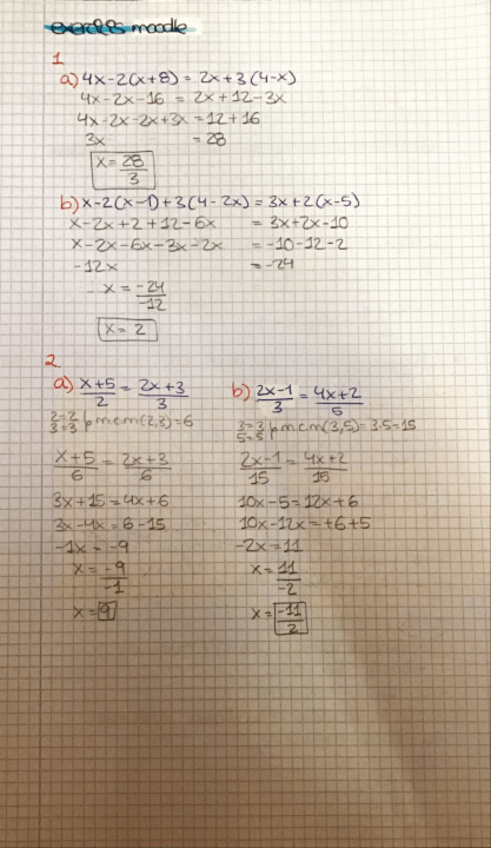 exercicis moodle
1
a) 4x-2(x+8) = 2x+3(4-x)
4x-2x-16 = 2x+12-3x
4x-2x-2x+3x = 12+16
3x = 28
x = 28/3
b) x-2(x-1)+3(4-2x) = 3x+2(x-5)
x-2x+2+12-6x = 3x+2x-10
x-2x-6x-3x-2x = -10-12-2
-12x = -24
x = -24/-12
x = 2
2
a) x+5/2 = 2x+3/3
2=2
3=3 } m.c.m(2,3)=6
x+5/6 = 2x+3/6
3x+15=4x+6
3x-4x=6-15
-1x = -9
x = -9/-1
x = 9
b) 2x-1/3 = 4x+2/5
3=3
5=5 } m.c.m(3,5)=3·5=15
2x-1/15 = 4x+2/15
10x-5=12x+6
10x-12x=+6+5
-2x=11
x = 11/-2
x = -11/2